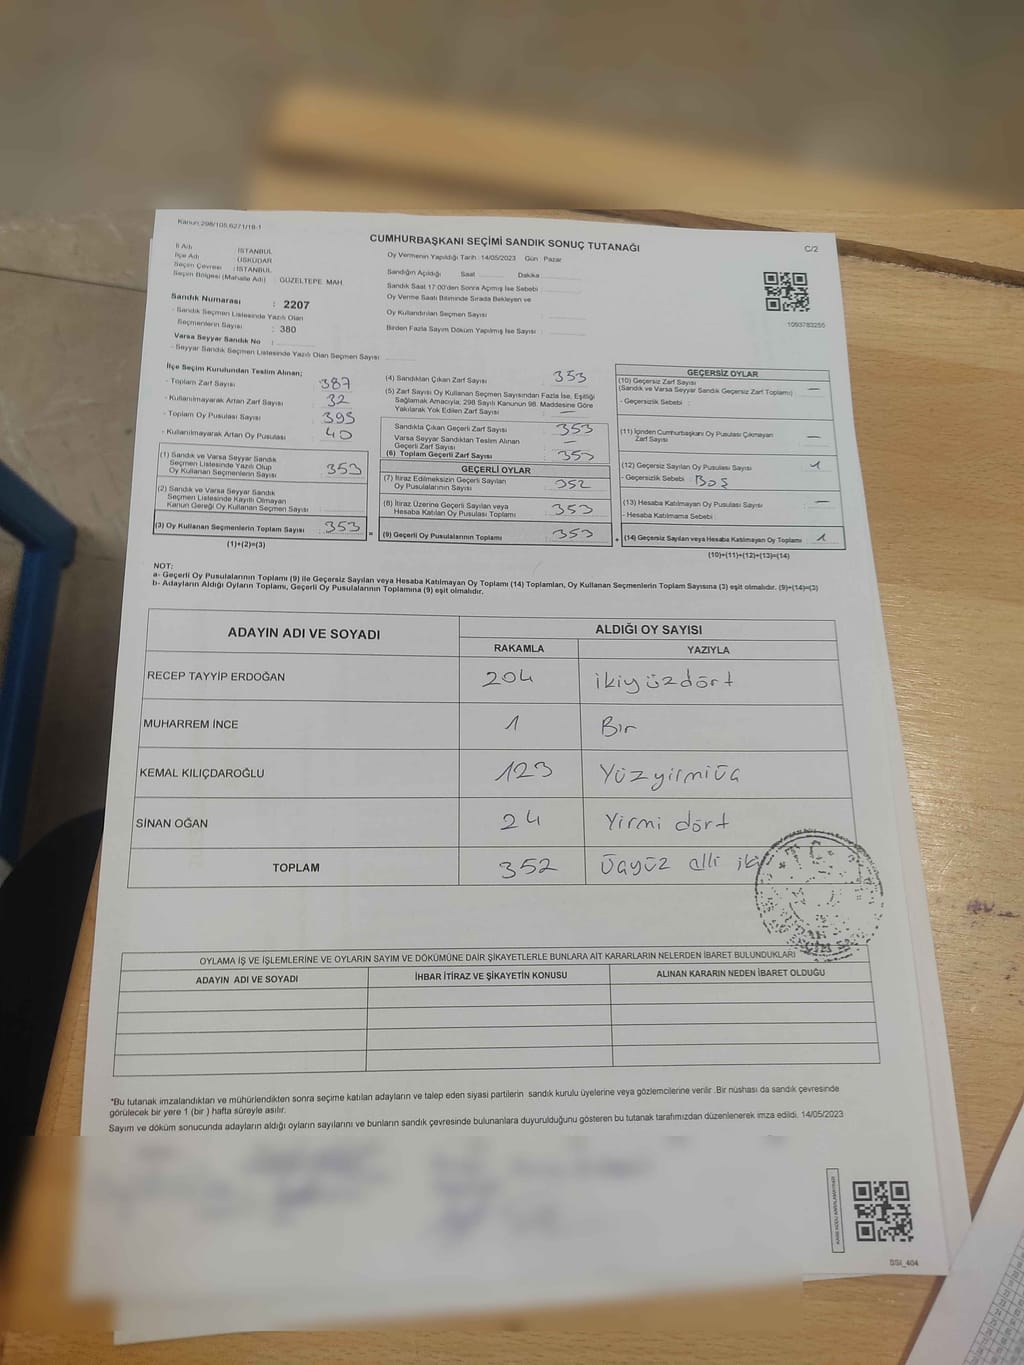 Kanun:298/105,6271/18-1
CUMHURBAŞKANI SEÇİMİ SANDIK SONUÇ TUTANAĞI
C/2
İl Adı : İSTANBUL
İlçe Adı : ÜSKÜDAR
Seçim Çevresi : İSTANBUL
Seçim Bölgesi (Mahalle Adı) : GÜZELTEPE MAH.
Sandık Numarası : 2207
- Sandık Seçmen Listesinde Yazılı Olan
Seçmenlerin Sayısı : 380
Varsa Seyyar Sandık No :
- Seyyar Sandık Seçmen Listesinde Yazılı Olan Seçmen Sayısı
Oy Vermenin Yapıldığı Tarih : 14/05/2023 Gün : Pazar
Sandığın Açıldığı Saat Dakika
Sandık Saat 17:00'den Sonra Açılmış İse Sebebi :
Oy Verme Saati Bitiminde Sırada Bekleyen ve
Oy Kullandırılan Seçmen Sayısı :
Birden Fazla Sayım Döküm Yapılmış İse Sayısı :
1093783255
İlçe Seçim Kurulundan Teslim Alınan;
- Toplam Zarf Sayısı : 387
- Kullanılmayarak Artan Zarf Sayısı : 32
- Toplam Oy Pusulası Sayısı : 393
- Kullanılmayarak Artan Oy Pusulası : 40
(1) Sandık ve Varsa Seyyar Sandık
Seçmen Listesinde Yazılı Olup
Oy Kullanan Seçmenlerin Sayısı : 353
(2) Sandık ve Varsa Seyyar Sandık
Seçmen Listesinde Kayıtlı Olmayan
Kanun Gereği Oy Kullanan Seçmen Sayısı :
(3) Oy Kullanan Seçmenlerin Toplam Sayısı : 353
(1)+(2)=(3)
=
(4) Sandıktan Çıkan Zarf Sayısı : 353
(5) Zarf Sayısı Oy Kullanan Seçmen Sayısından Fazla İse, Eşitliği
Sağlamak Amacıyla; 298 Sayılı Kanunun 98. Maddesine Göre
Yakılarak Yok Edilen Zarf Sayısı : —
Sandıkta Çıkan Geçerli Zarf Sayısı : 353
Varsa Seyyar Sandıktan Teslim Alınan
Geçerli Zarf Sayısı : —
(6) Toplam Geçerli Zarf Sayısı : 353
GEÇERLİ OYLAR
(7) İtiraz Edilmeksizin Geçerli Sayılan
Oy Pusulalarının Sayısı : 352
(8) İtiraz Üzerine Geçerli Sayılan veya
Hesaba Katılan Oy Pusulası Toplamı : 353
(9) Geçerli Oy Pusulalarının Toplamı : 353
+
GEÇERSİZ OYLAR
(10) Geçersiz Zarf Sayısı
(Sandık ve Varsa Seyyar Sandık Geçersiz Zarf Toplamı) : —
- Geçersizlik Sebebi :
(11) İçinden Cumhurbaşkanı Oy Pusulası Çıkmayan
Zarf Sayısı : —
(12) Geçersiz Sayılan Oy Pusulası Sayısı : 1
- Geçersizlik Sebebi : BOŞ
(13) Hesaba Katılmayan Oy Pusulası Sayısı : —
- Hesaba Katılmama Sebebi :
(14) Geçersiz Sayılan veya Hesaba Katılmayan Oy Toplamı : 1
(10)+(11)+(12)+(13)=(14)
NOT:
a- Geçerli Oy Pusulalarının Toplamı (9) ile Geçersiz Sayılan veya Hesaba Katılmayan Oy Toplamı (14) Toplamları, Oy Kullanan Seçmenlerin Toplam Sayısına (3) eşit olmalıdır. (9)+(14)=(3)
b- Adayların Aldığı Oyların Toplamı, Geçerli Oy Pusulalarının Toplamına (9) eşit olmalıdır.
ADAYIN ADI VE SOYADI
ALDIĞI OY SAYISI
RAKAMLA YAZIYLA
RECEP TAYYİP ERDOĞAN 204 ikiyüzdört
MUHARREM İNCE 1 Bir
KEMAL KILIÇDAROĞLU 123 Yüzyirmiüç
SİNAN OĞAN 24 Yirmi dört
TOPLAM 352 Üçyüz elli iki
OYLAMA İŞ VE İŞLEMLERİNE VE OYLARIN SAYIM VE DÖKÜMÜNE DAİR ŞİKAYETLERLE BUNLARA AİT KARARLARIN NELERDEN İBARET BULUNDUKLARI
ADAYIN ADI VE SOYADI İHBAR İTİRAZ VE ŞİKAYETİN KONUSU ALINAN KARARIN NEDEN İBARET OLDUĞU
*Bu tutanak imzalandıktan ve mühürlendikten sonra seçime katılan adayların ve talep eden siyasi partilerin sandık kurulu üyelerine veya gözlemcilerine verilir .Bir nüshası da sandık çevresinde
görülecek bir yere 1 (bir ) hafta süreyle asılır.
Sayım ve döküm sonucunda adayların aldığı oyların sayılarını ve bunların sandık çevresinde bulunanlara duyurulduğunu gösteren bu tutanak tarafımızdan düzenlenerek imza edildi. 14/05/2023
SSI_404